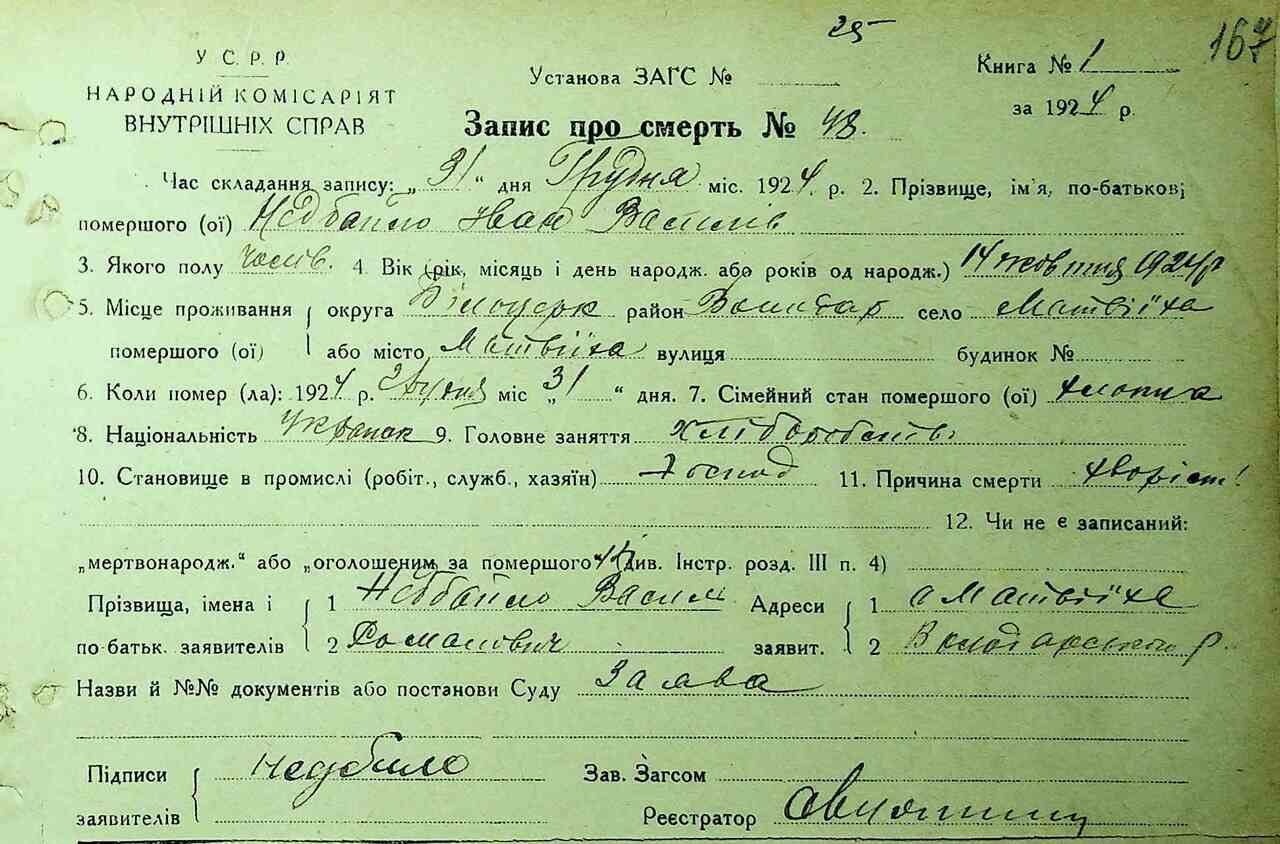 25
167
У С. Р. Р.
НАРОДНІЙ КОМІСАРІЯТ
ВНУТРІШНІХ СПРАВ
Установа ЗАГС №
Книга № 1
за 1924 р.
Запис про смерть № 48.
Час складання запису: „31“ дня Грудня міс. 1924 р. 2. Прізвище, ім'я, по-батькові
помершого (ої) Недбайло Іван Василів
3. Якого полу чолів. 4. Вік (рік, місяць і день народж. або років од народж.) 14 жовтня 1924 р
5. Місце проживання округа Білоцерк район Володар село Матвіїха
помершого (ої) або місто Матвіїха вулиця будинок №
6. Коли помер (ла): 1924 р. Грудня міс „31“ дня. 7. Сімейний стан помершого (ої) хлопця
8. Національність 9. Головне заняття хліборобств
10. Становище в промислі (робіт., служб., хазяїн) Господ 11. Причина смерти
12. Чи не є записаний:
„мертвонародж.“ або „оголошеним за помершого“ (див. Інстр. розд. III п. 4)
Прізвища, імена і 1 Недбайло Васил Адреси 1 с Матвіїха
по-батьк. заявителів 2 Романович заявит. 2 Володарського р.
Назви й №№ документів або постанови Суду Заява
Підписи Недбайло Зав. Загсом
заявителів Реєстратор